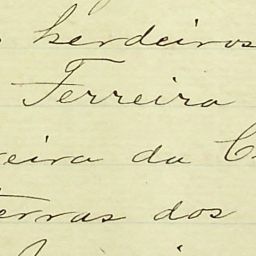 herdeiros
Ferreira
eira da
terras dos